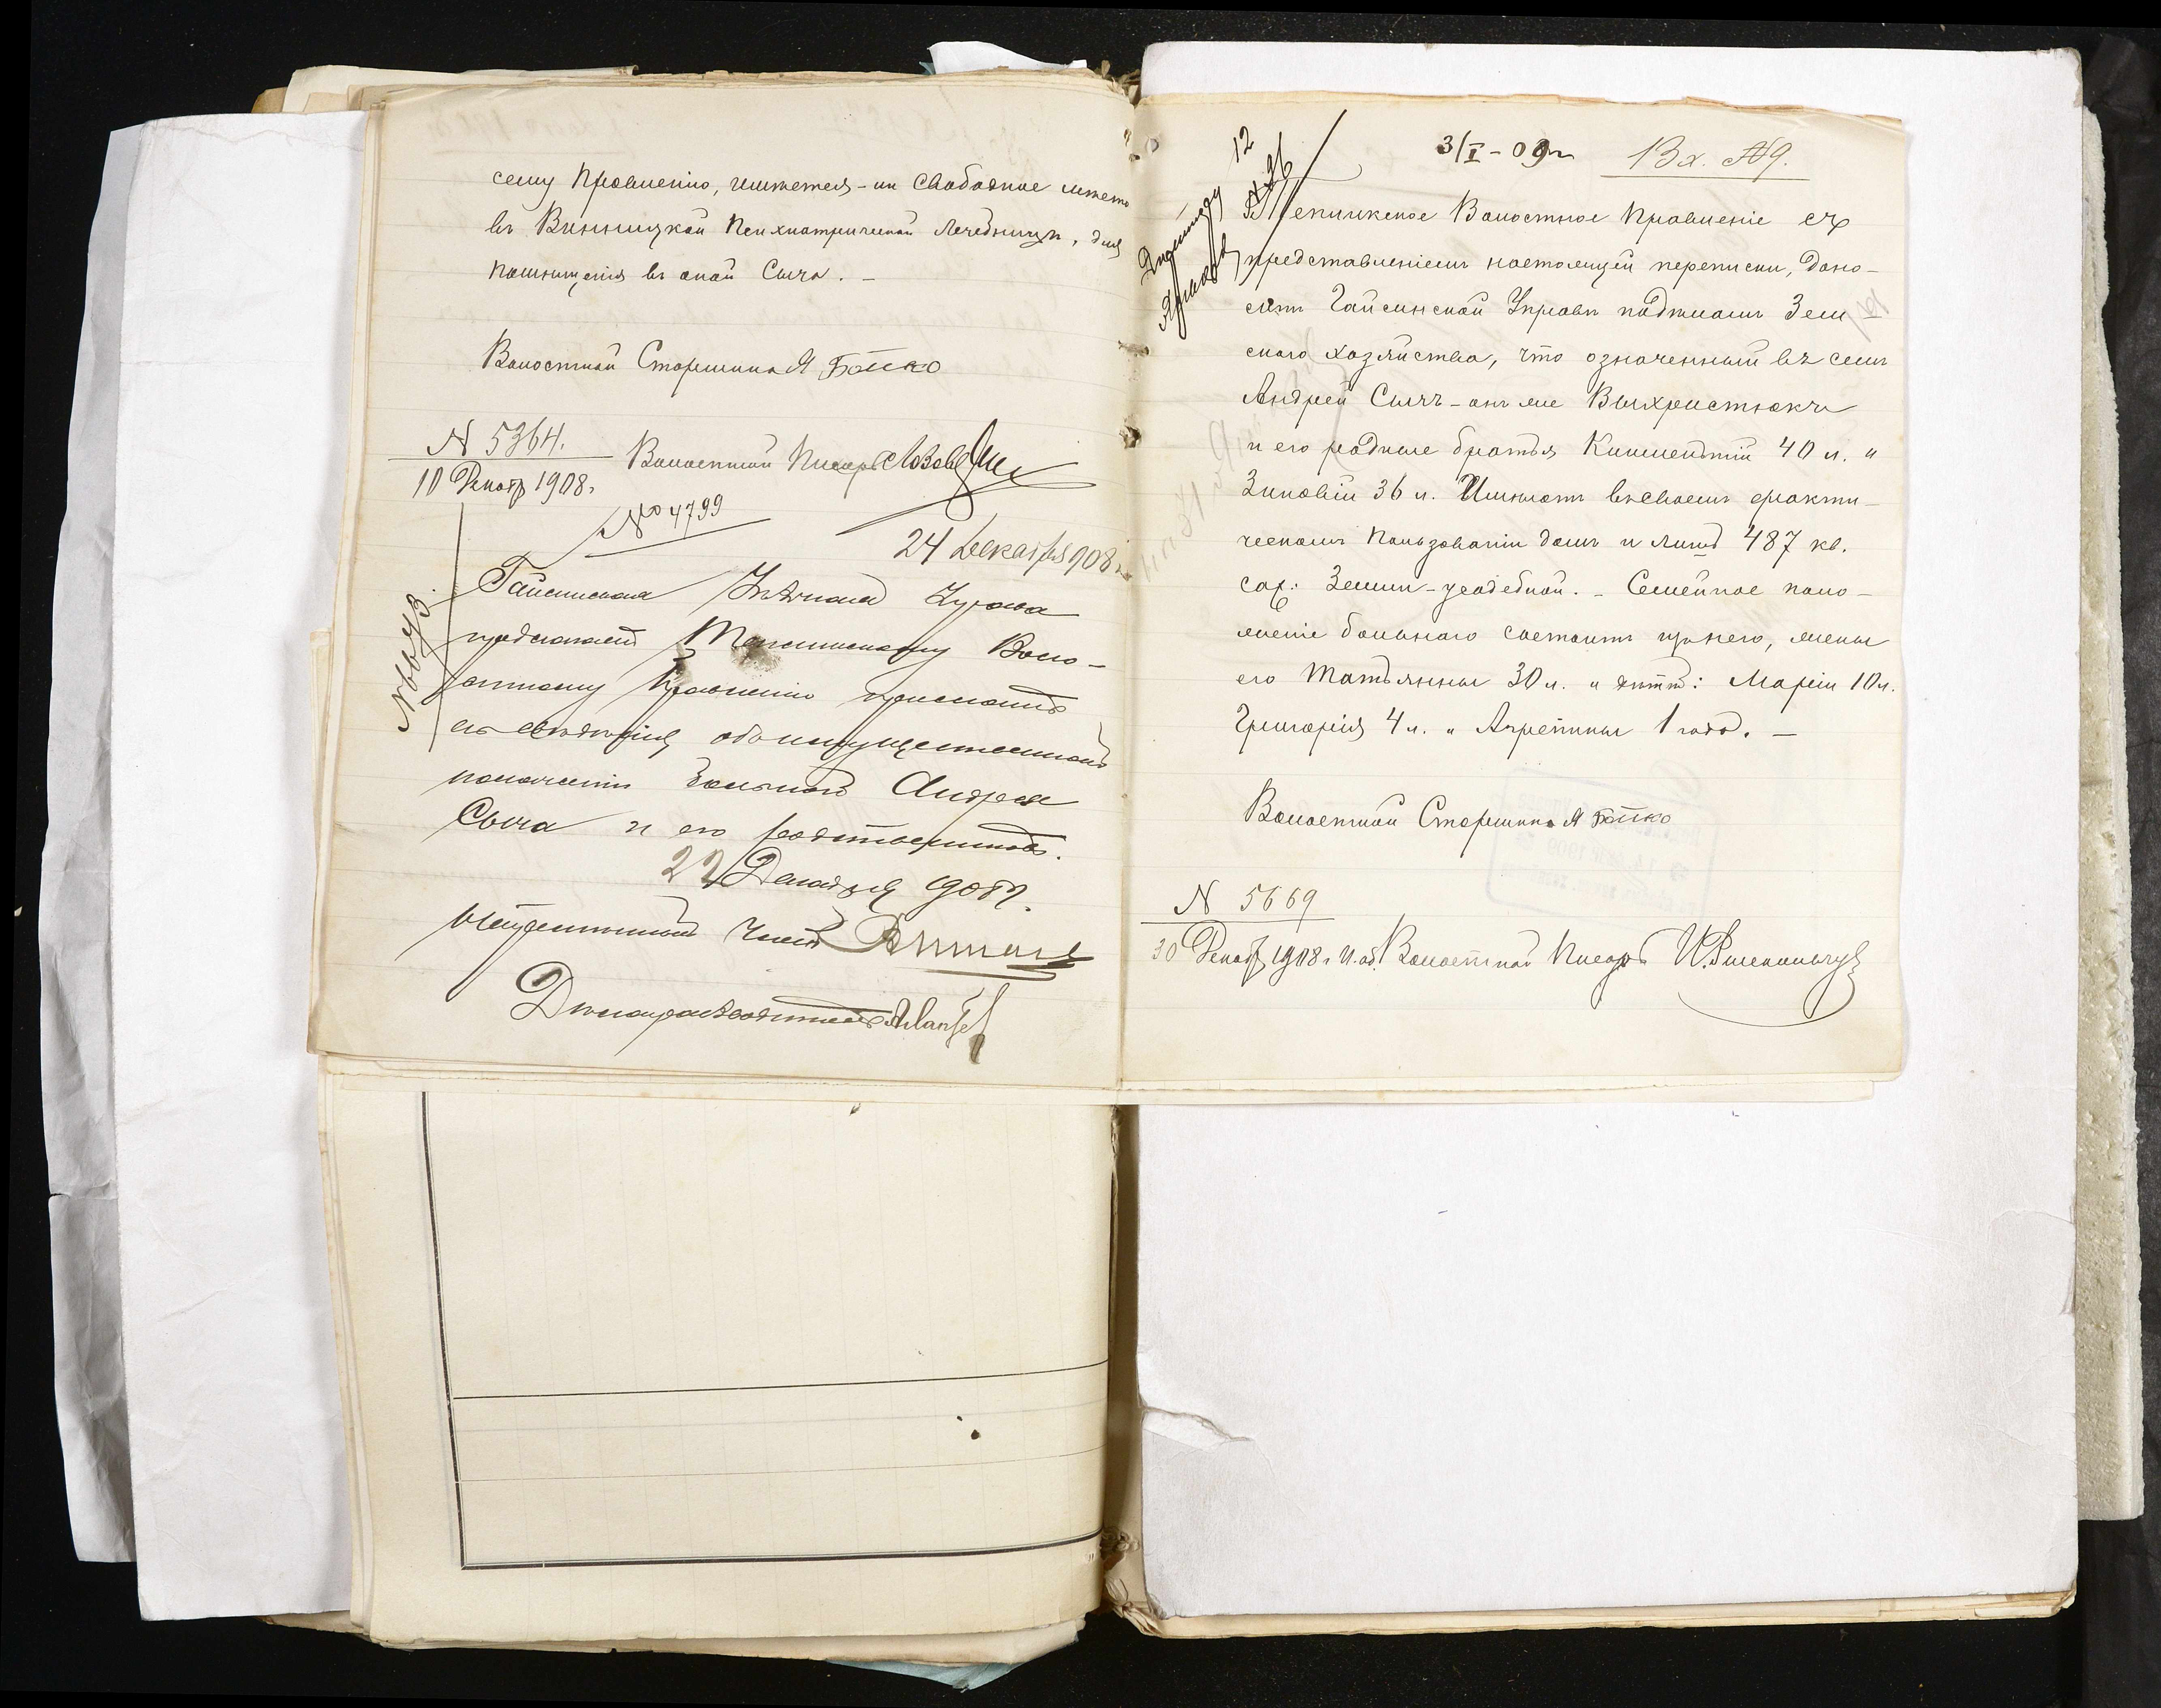 сему Правленію, имѣется-ли свободное мѣсто
въ Винницкой Психіатрической лечебницѣ, для
помѣщенія въ оной Сыча. –
Волостной Старшина Я Бойко
N 5364.
10 Декабр 1908 г.
Волостной Писарь
№ 4799
24 Декабря 908 г.
Гайсинская Уѣздная Управа
предлагаетъ Тепликскому Воло-
стному Правленію прислать
ей свѣдѣнія объ имущественномъ
положеніи больного Андрея
Сыча и его родственниковъ.
22 Декабря 1908 г.
Непремѣнный Членъ
Дѣлопроизводитель
3/I - 09 г.
Вх. N 9.
12
Тепликское Волостное Правленіе съ
представленіемъ настоящей переписки, доно-
ситъ Гайсинской Управѣ по дѣламъ Зем-
скаго хозяйства, что означенный въ семъ
Андрей Сычъ - онъ же Выхристюкъ
и его родные братья Климентій 40 л. и
Зиновій 36 л. Имѣютъ въ своемъ факти-
ческомъ пользованіи домъ и лишь 487 кв.
саж: Земли-усадебной. – Семейное поло-
женіе больного состоитъ изъ него, жены
его Татьянны 30 л. и дѣтей: Маріи 10 л.
Григорія 4 л. и Агрепины 1 года. –
Волостной Старшина Я Бойко
N 5669
30 Декабр 1908 г. И. об. Волостной Писарь